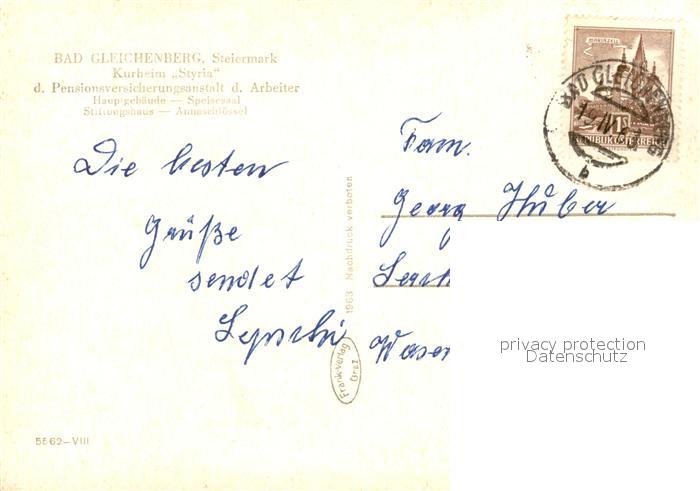 BAD GLEICHENBERG, Steiermark
Kurheim „Styria“
d. Pensionsversicherungsanstalt d. Arbeiter
Hauptgebäude — Speisesaal
Stiftungshaus — Annaschlössel
MARIAZELL
BAD GLEICHENBERG
1S
REPUBLIK ÖSTERREICH
b
Die besten
Grüße
sendet
Fam.
Georg Huber
1963 Nachdruck verboten
Frank-Verlag
Graz
privacy protection
Datenschutz
5562-VIII